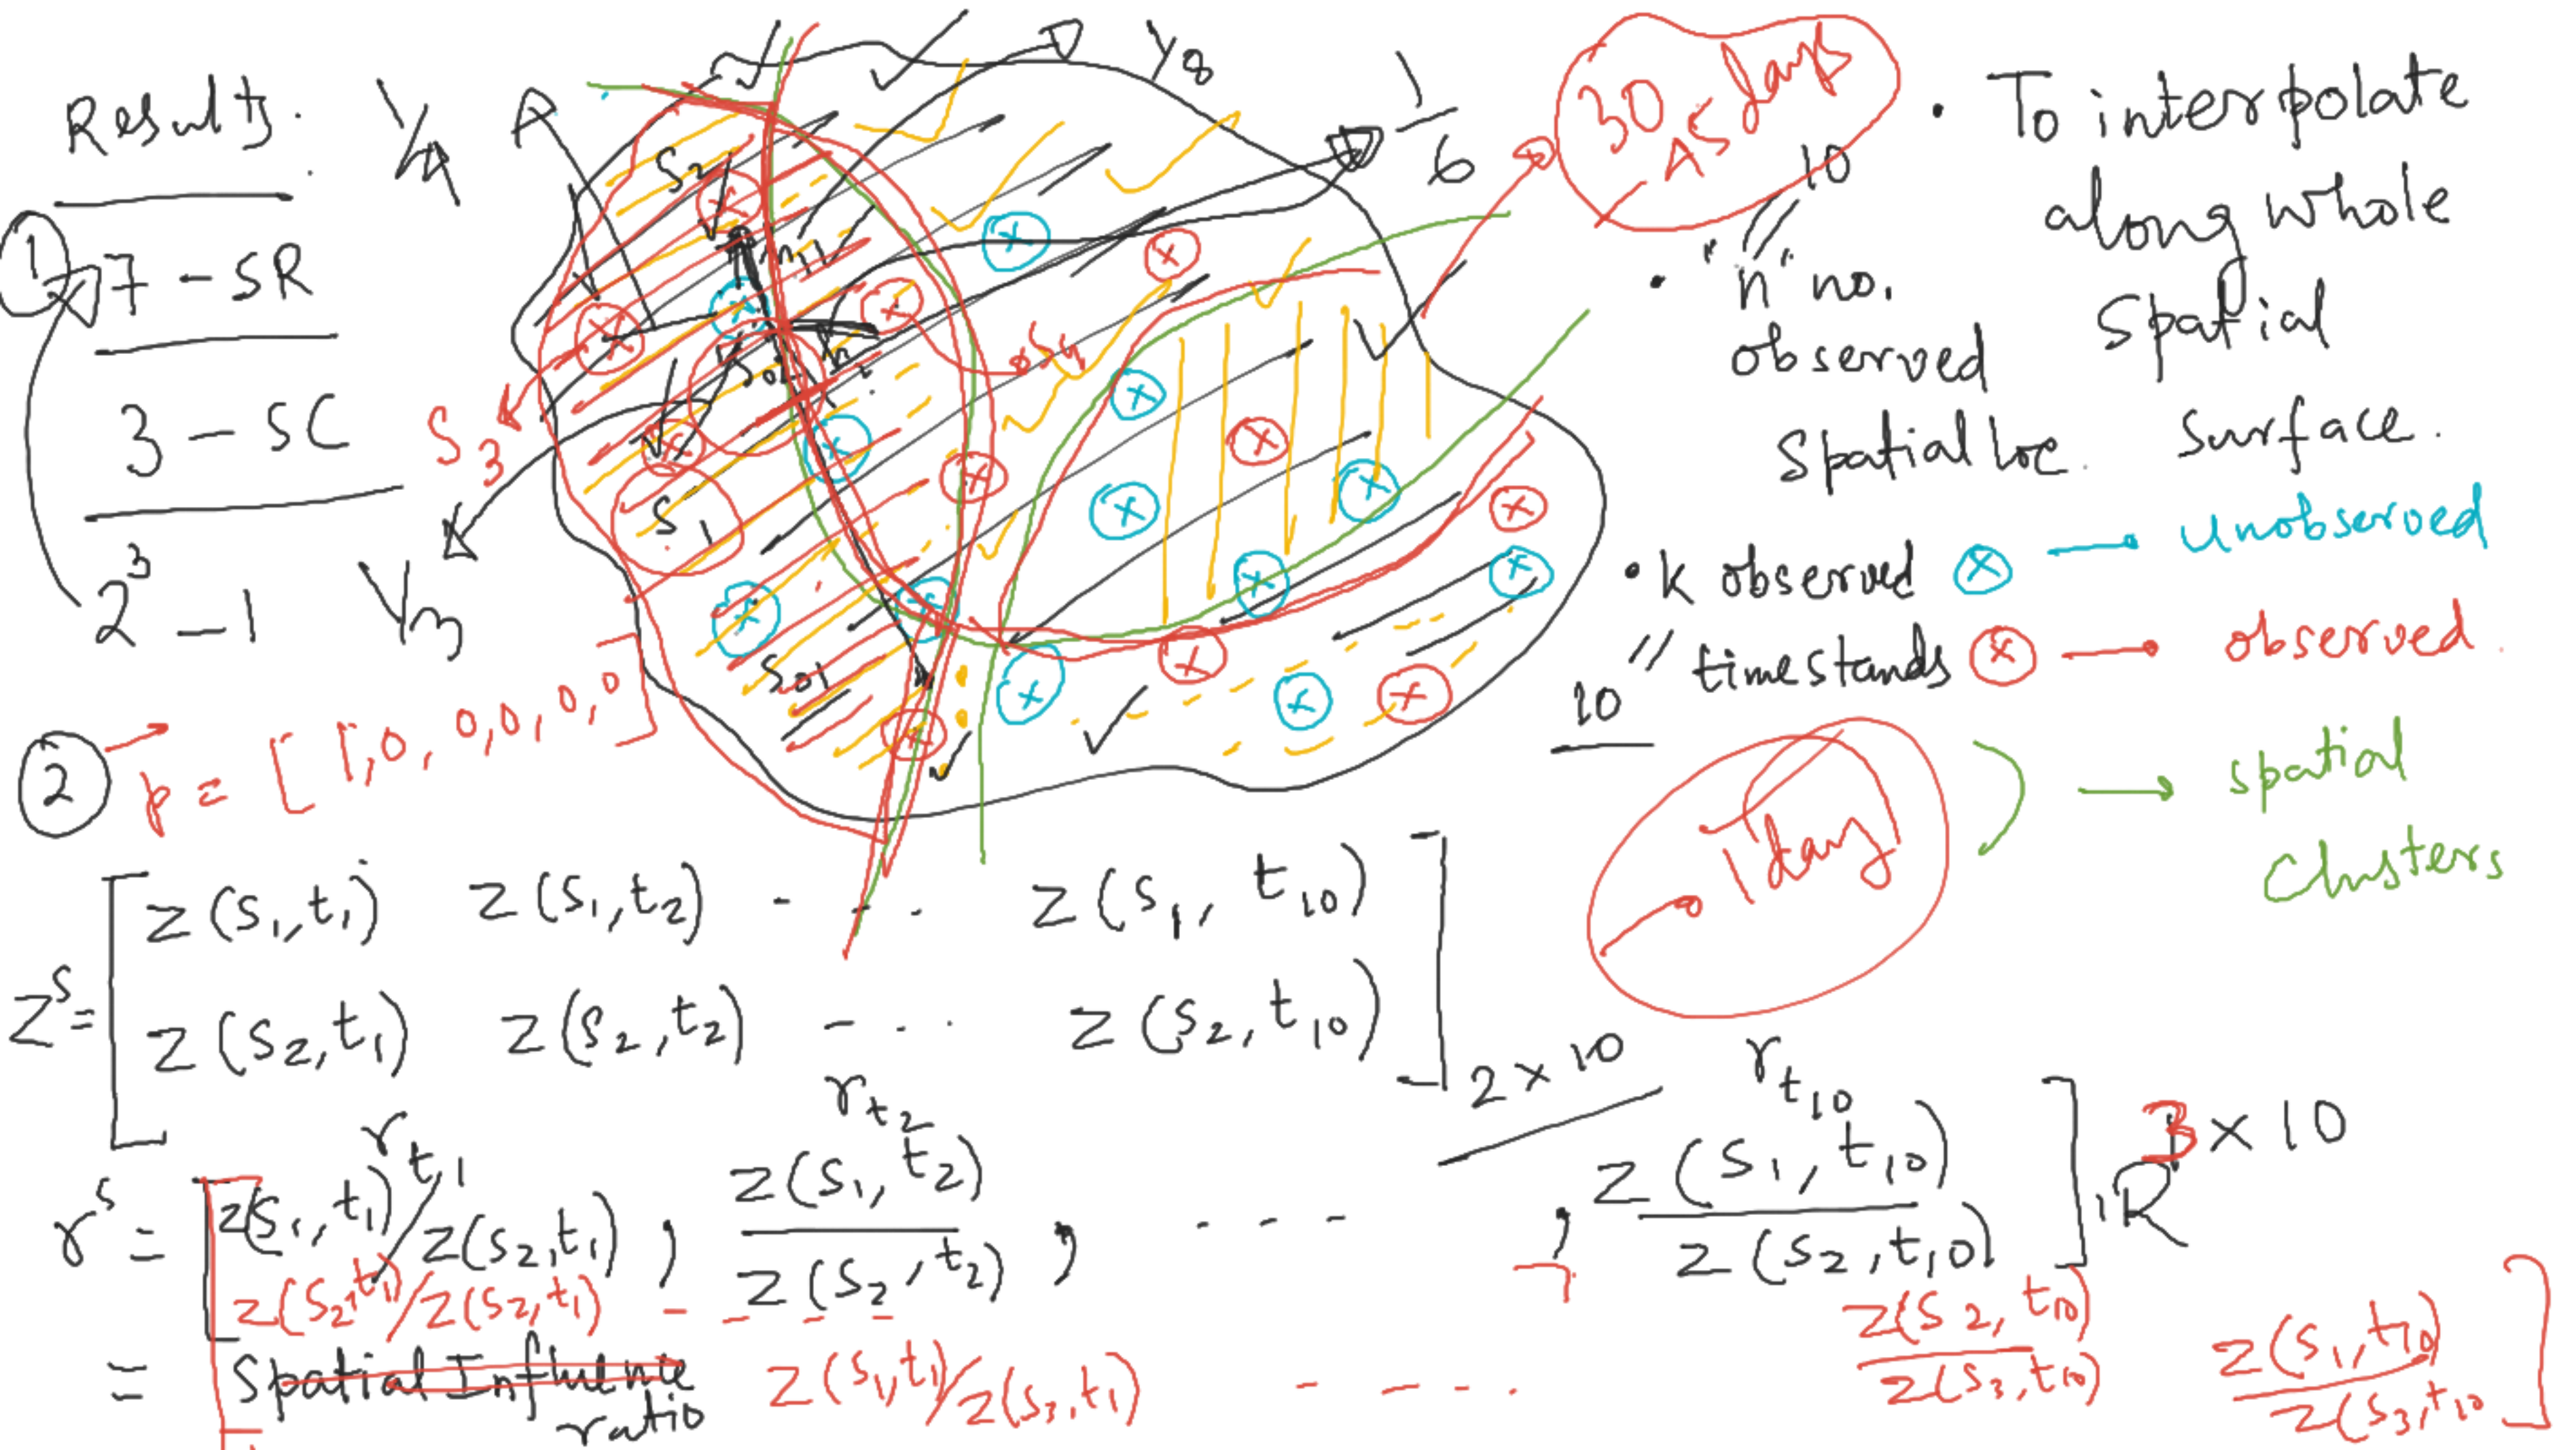 Results.
1
7 - SR
3 - SC
2³ - 1
1/4
1/3
1/8
1/6
S2
S02
S4
S3
S1
S01
30
45 days
• To interpolate
along whole
spatial
surface.
10
• "n" no.
observed
spatial loc.
• K observed
timestands
10
unobserved
observed.
spatial
clusters
1 day
2
p = [1, 0, 0, 0, 0, 0, 0]
Z^S = [ z(s1,t1) z(s1,t2) - . . z(s1, t10)
z(s2,t1) z(s2,t2) - . . z(s2, t10) ] 2 × 10
r_t1 r_t2 r_t10
r^s = [ z(s1,t1)/z(s2,t1) , z(s1,t2)/z(s2,t2) , - - - , z(s1,t10)/z(s2,t10) ] R^3 × 10
z(s2,t1)/z(s2,t1) - - - - z(s2, t10)/z(s3,t10)
= Spatial Influence
ratio
z(s1,t1)/z(s3,t1) - - - . z(s1,t10)/z(s3,t10 ]